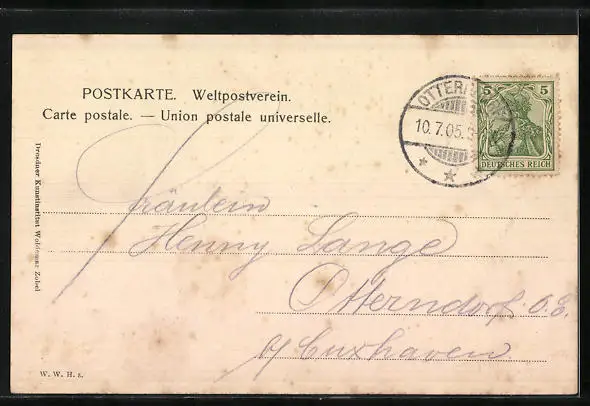 POSTKARTE. Weltpostverein.
Carte postale. — Union postale universelle.
OTTERN
10.7.05.
5 5
DEUTSCHES REICH
Dresdner Kunstinstitut Woldemar Zobel
Fräulein
Henny Lange
Otterndorf. O.E.
b/ Cuxhaven
W. W. H. s.